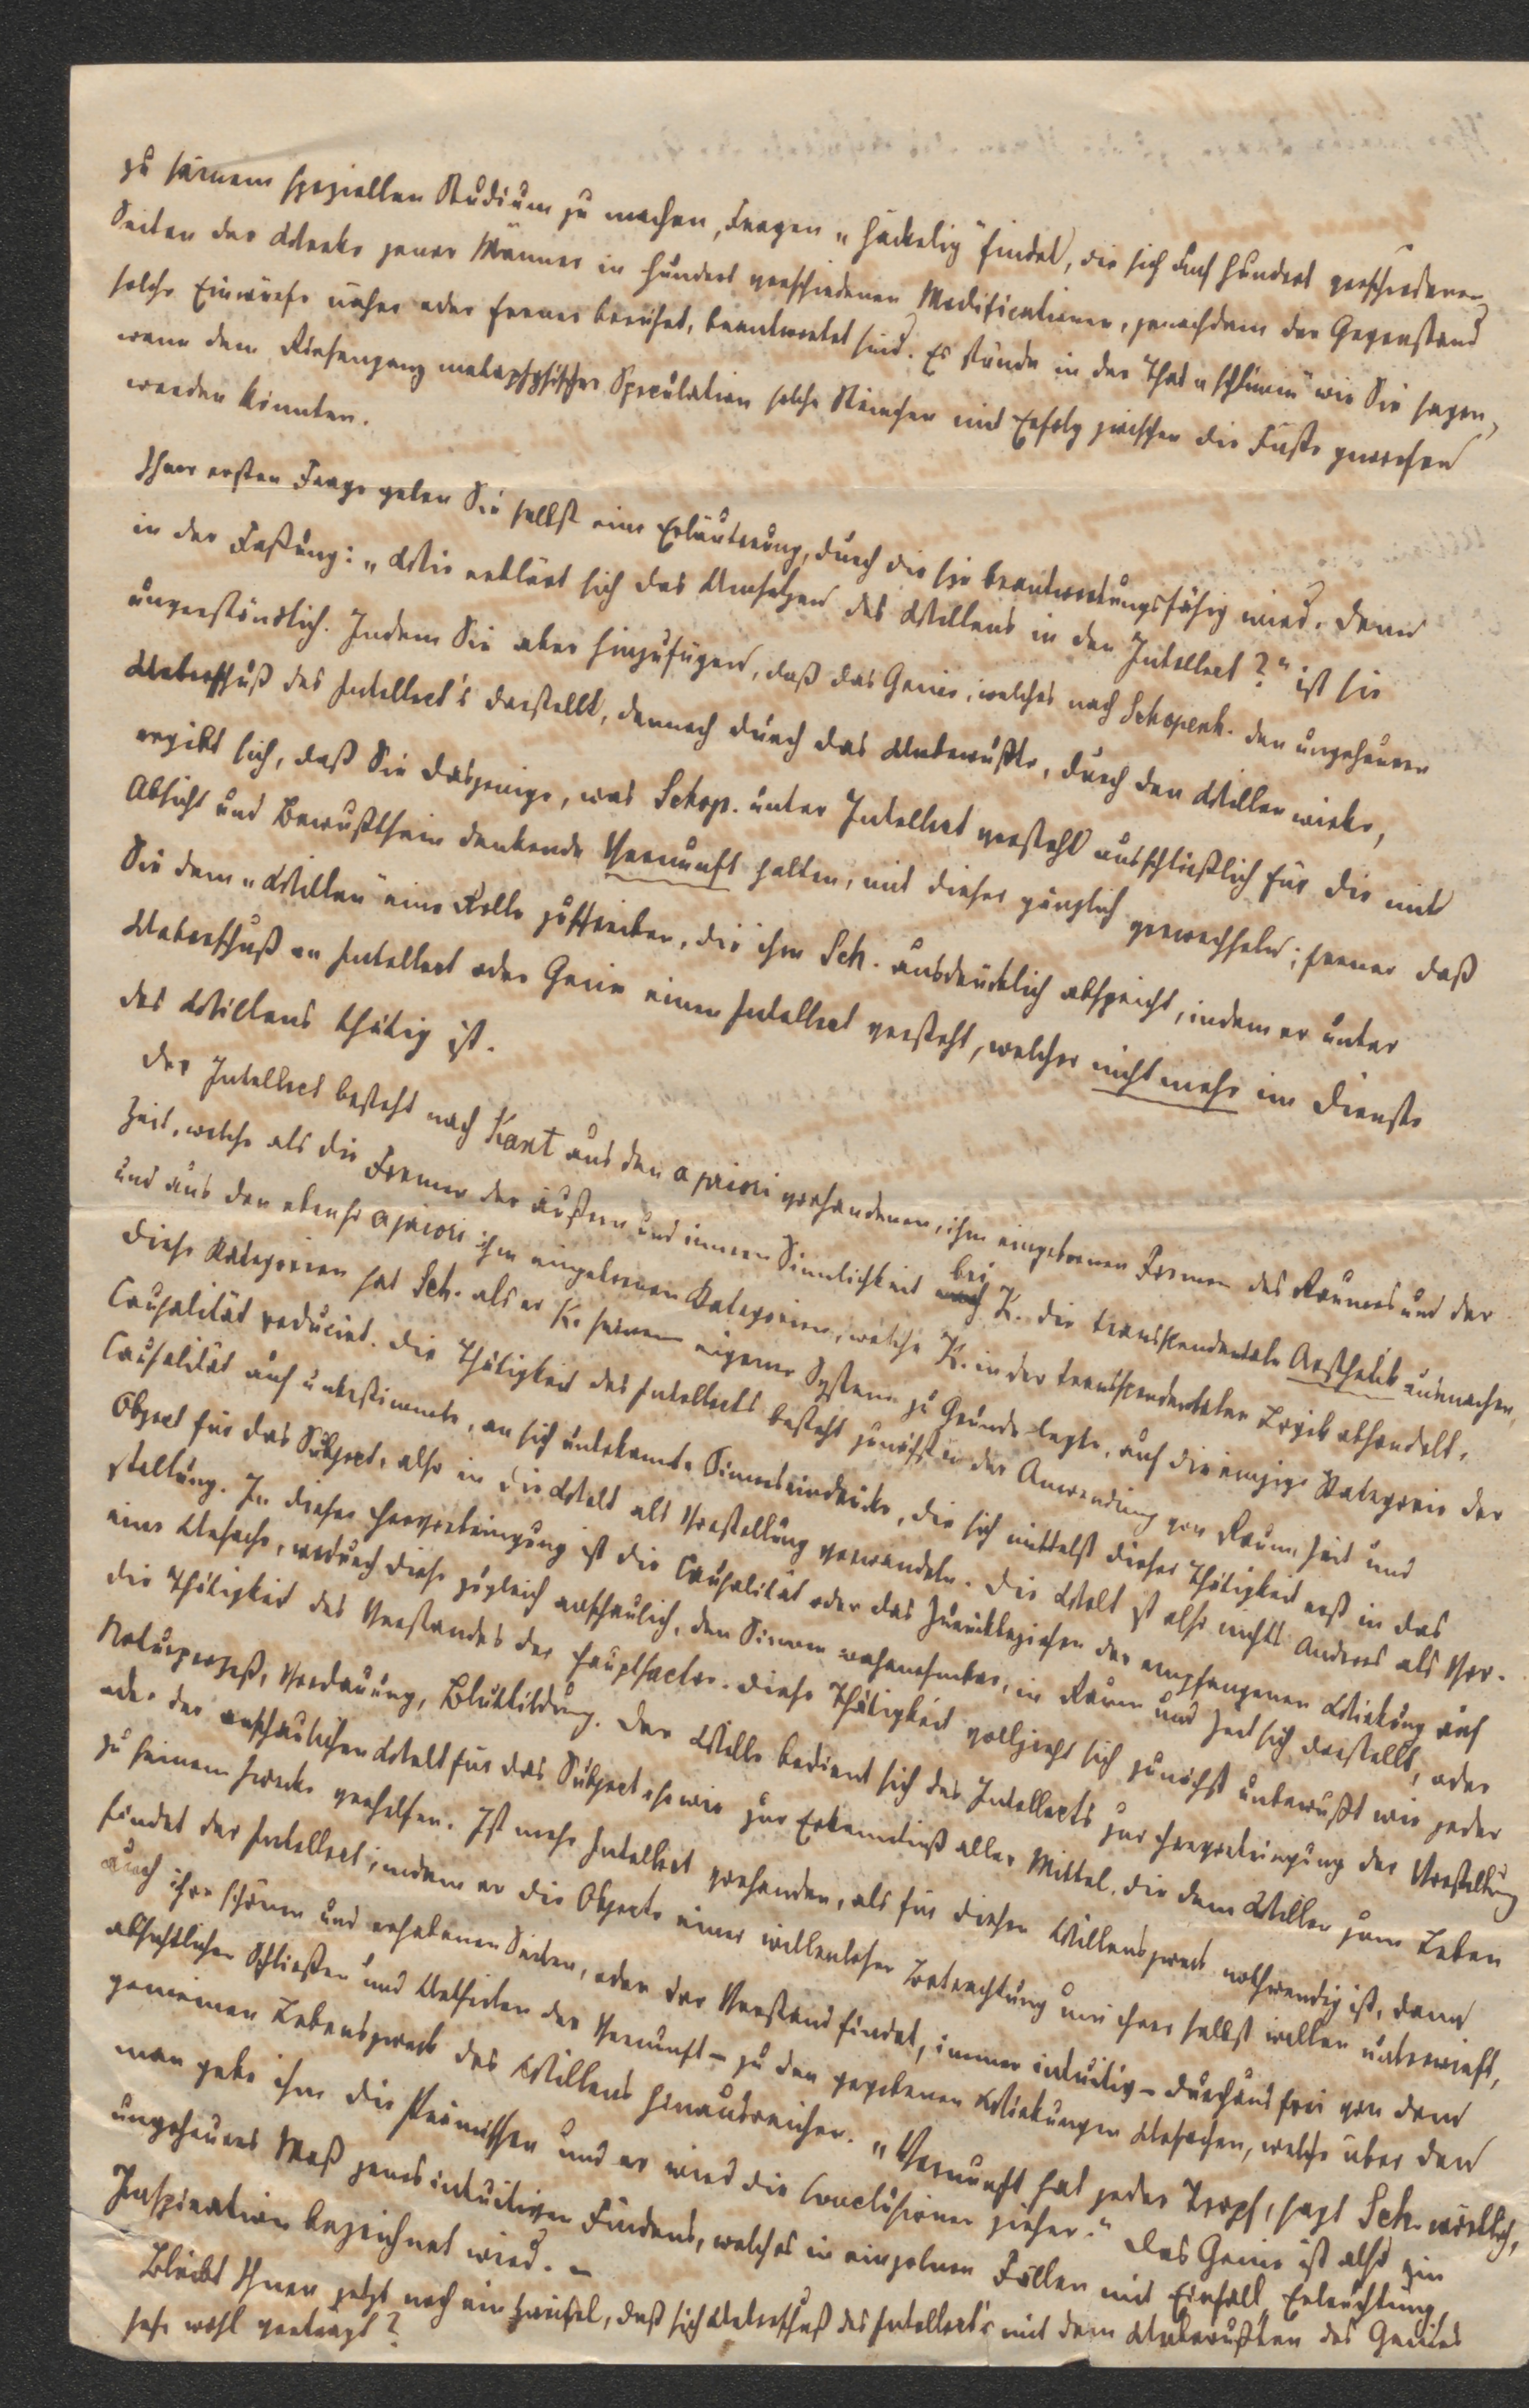 zu seinem speziellen Studium zu machen, Fragen „häckelig" findet, die sich auf hundert verschiedenen
Seiten der Werke jener Männer in hundert verschiedenen Modificationen, jenachdem der Gegenstand
solche Einwürfe näher oder ferner berührt, beantwortet sind. Es stünde in der That „schlimm" wie Sie sagen,
wenn dem Riesengang metaphysischer Speculation solche Steinchen mit Erfolg zwischen die Füße geworfen
werden könnten.
Ihrer ersten Frage geben Sie selbst eine Erläuterung, durch die sie beantwortungsfähig wird. Denn
in der Faßung: „Wie erklärt sich das Umsetzen des Willens in den Intellect?" ist sie
unverständlich. Indem Sie aber hinzufügen, daß das Genie, welches nach Schopenh. den ungeheuren
Ueberschuß des Intellect's darstellt, dennoch durch das Unbewußte, durch den Willen wirke,
ergibt sich, daß Sie dasjenige, was Schop. unter Intellect versteht ausschließlich für die mit
Absicht und Bewußtsein denkende Vernunft halten, mit dieser gänzlich verwechseln; ferner daß
Sie dem „Willen" eine Rolle zuschreiben, die ihm Sch. ausdrücklich abspricht, indem er unter
Ueberschuß an Intellect oder Genie einen Intellect versteht, welcher nicht mehr im Dienste
des Willens thätig ist.
Der Intellect besteht nach Kant aus den a priori vorhandenen, ihm eingebornen Formen des Raumes und der
Zeit, welche als die Formen der äußern und innern Sinnlichkeit bei K. die transscendentale Aesthetik ausmachen,
und aus den ebenso a priori ihm eingebornen Kategorien, welche K. in der transscendentalen Logik abhandelt.
Diese Kategorien hat Sch. als er K. seinem eigenen System zu Grunde legte, auf die einzige Kategorie der
Causalität reducirt. Die Thätigkeit des Intellects besteht zunächst in der Anwendung von Raum, Zeit und
Causalität auf unbestimmte, an sich unbekannte Sinneseindrücke, die sich mittelst dieser Thätigkeit erst in das
Object für das Subject, also in die Welt als Vorstellung verwandeln. Die Welt ist also nichts Anderes als Vor-
stellung. In dieser Hervorbringung ist die Causalität oder das Zurückbeziehen der empfangenen Wirkung auf
eine Ursache, wodurch diese zugleich anschaulich, den Sinnen wahrnehmbar, in Raum und Zeit sich darstellt, oder
die Thätigkeit des Verstandes der Hauptfactor. Diese Thätigkeit vollzieht sich zunächst unbewußt wie jeder
Naturprozeß, Verdauung, Blutbildung. Der Wille bedient sich des Intellects zur Hervorbringung der Vorstellung
oder der anschaulichen Welt für das Subject sowie zur Erkenntniß aller Mittel, die dem Willen zum Leben
zu seinem Zwecke verhelfen. Ist mehr Intellect vorhanden, als für diesen Willenszweck nothwendig ist, dann
findet der Intellect, indem er die Objecte einer willenlosen Betrachtung um ihrer selbst willen unterwirft,
auch ihre schönen und erhabenen Seiten, oder der Verstand findet, immer intuitiv – durchaus frei von dem
absichtlichen Schließen und Urtheilen der Vernunft – zu den gegebenen Wirkungen Ursachen, welche über den
gemeinen Lebenszweck des Willens hinausreichen. „Vernunft hat jeder Tropf, sagt Sch. wörtlich,
man gebe ihm die Prämissen und er wird die Conclusionen ziehen." Das Genie ist also ein
ungeheures Maß jenes intuitiven Findens, welches in einzelnen Fällen mit Einfall, Erleuchtung,
Inspiration bezeichnet wird. –
Bleibt Ihnen jetzt noch ein Zweifel, daß sich Ueberschuß des Intellect's mit dem Unbewußten des Genies
sehr wohl verträgt?